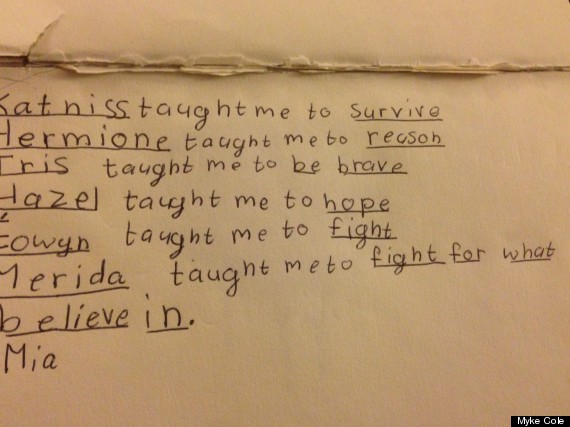 Katniss taught me to survive
Hermione taught me to reason
Tris taught me to be brave
Hazel taught me to hope
Éowyn taught me to fight
Merida taught me to fight for what
believe in.
Mia
Myke Cole